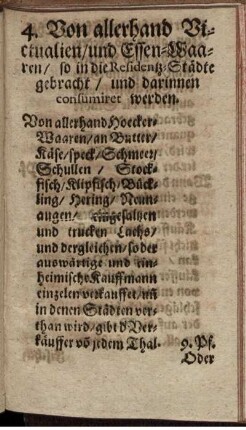 4. Von allerhand Vi-
ctualien/und Essen-Waa-
ren/ so in die Residentz-Städte
gebracht/ und darinnen
consumiret werden.
Von allerhand Hoecker-
Waaren/an Butter/
Käse/speck/Schmeer/
Schullen / Stock-
fisch/Klipfisch/Bück-
ling/ Hering/ Neun-
augen/ eingesaltzen
und trucken Lachs/
und dergleichen/so der
auswärtige und ein-
heimische Kauffmann
eintzelen verkauffet/uñ
in denen Städten ver-
than wird/gibt d'Ver-
käuffer võ jedem Thal. 9. Pf.
Oder